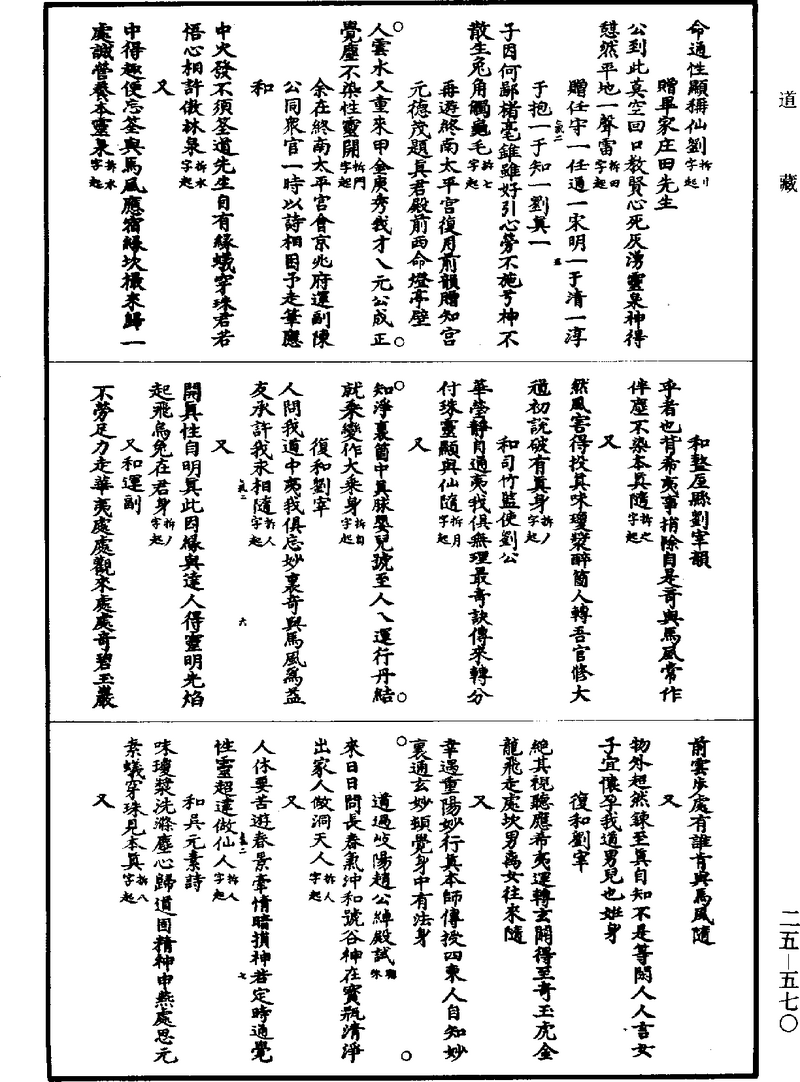 道藏
命通性顯稱仙劉拆刂字起
贈畢家庄田先生
公到此莫空回口教賢心死灰湧靈泉神得
憇然平地一聲雷拆田字起
贈任守一任通一宋明一于清一淳
于抱一于知一劉真一
子因何鄙楮毫錐雖好引心勞不施兮神不
散生兔角觸龜毛拆七字起
再遊終南太平宮復用前韻贈知宮
元德茂題真君殿前西命燈亭壁
人雲水又重來甲金庚秀我才八元公成正
覺塵不染性靈開拆門字起
余在終南太平宮會京兆府運副陳
公同眾官一時以詩相因予走筆應
和
中火發不須筌道先生自有緣蟻穿珠君若
悟心相許傲林泉拆水字起
又
中得趣便忘筌與馬風應宿緣坎攥來歸一
處誠營養本靈泉拆水字起
和盩厔縣劉宰韻
乎者也背希夷事捎除自是奇與馬風常作
伴塵不染本真隨拆之字起
又
然風害得投真味瓊漿醉箇人轉吾官修大
道初說破有真身拆丿字起
和司竹監使劉公
華瑩靜自通夷我俱無理最奇訣傳來轉分
付珠靈顯與仙隨拆月字起
又
知淨裏箇中真脉嬰兒號至人八運行丹結
就乘變作大乘身拆自字起
復和劉宰
人問我道中夷我俱忘妙裏奇與馬風為益
友承許我永相隨拆人字起
又
開真性自明真此因緣與達人得靈明光焰
起飛烏兔在君身拆丿字起
又和運副
不勞足力走華夷處處觀來處處奇碧玉巖
前雲步處有誰肯與馬風隨
又
物外超然鍊至真自知不是等閑人人言女
子宜懷孕我道男兒也姙身
復和劉宰
絕其視聽應希夷運轉玄關得至奇玉虎金
龍飛走處坎男离女往來隨
又
幸遇重陽妙行真本師傳授四東人自知妙
裏通玄妙頓覺身中有法身
道過岐陽趙公綽殿試
來日日問長春氣沖和號谷神在寶瓶清淨
出家人做洞天人拆人字起
又
人休要苦遊春景牽情暗損神若定時通覺
性靈超達做仙人拆人字起
和吳元素詩
味瓊漿洗滌塵心歸道固精神中燕處思元
素蟻穿珠見本真拆八字起
又
二五—五七〇